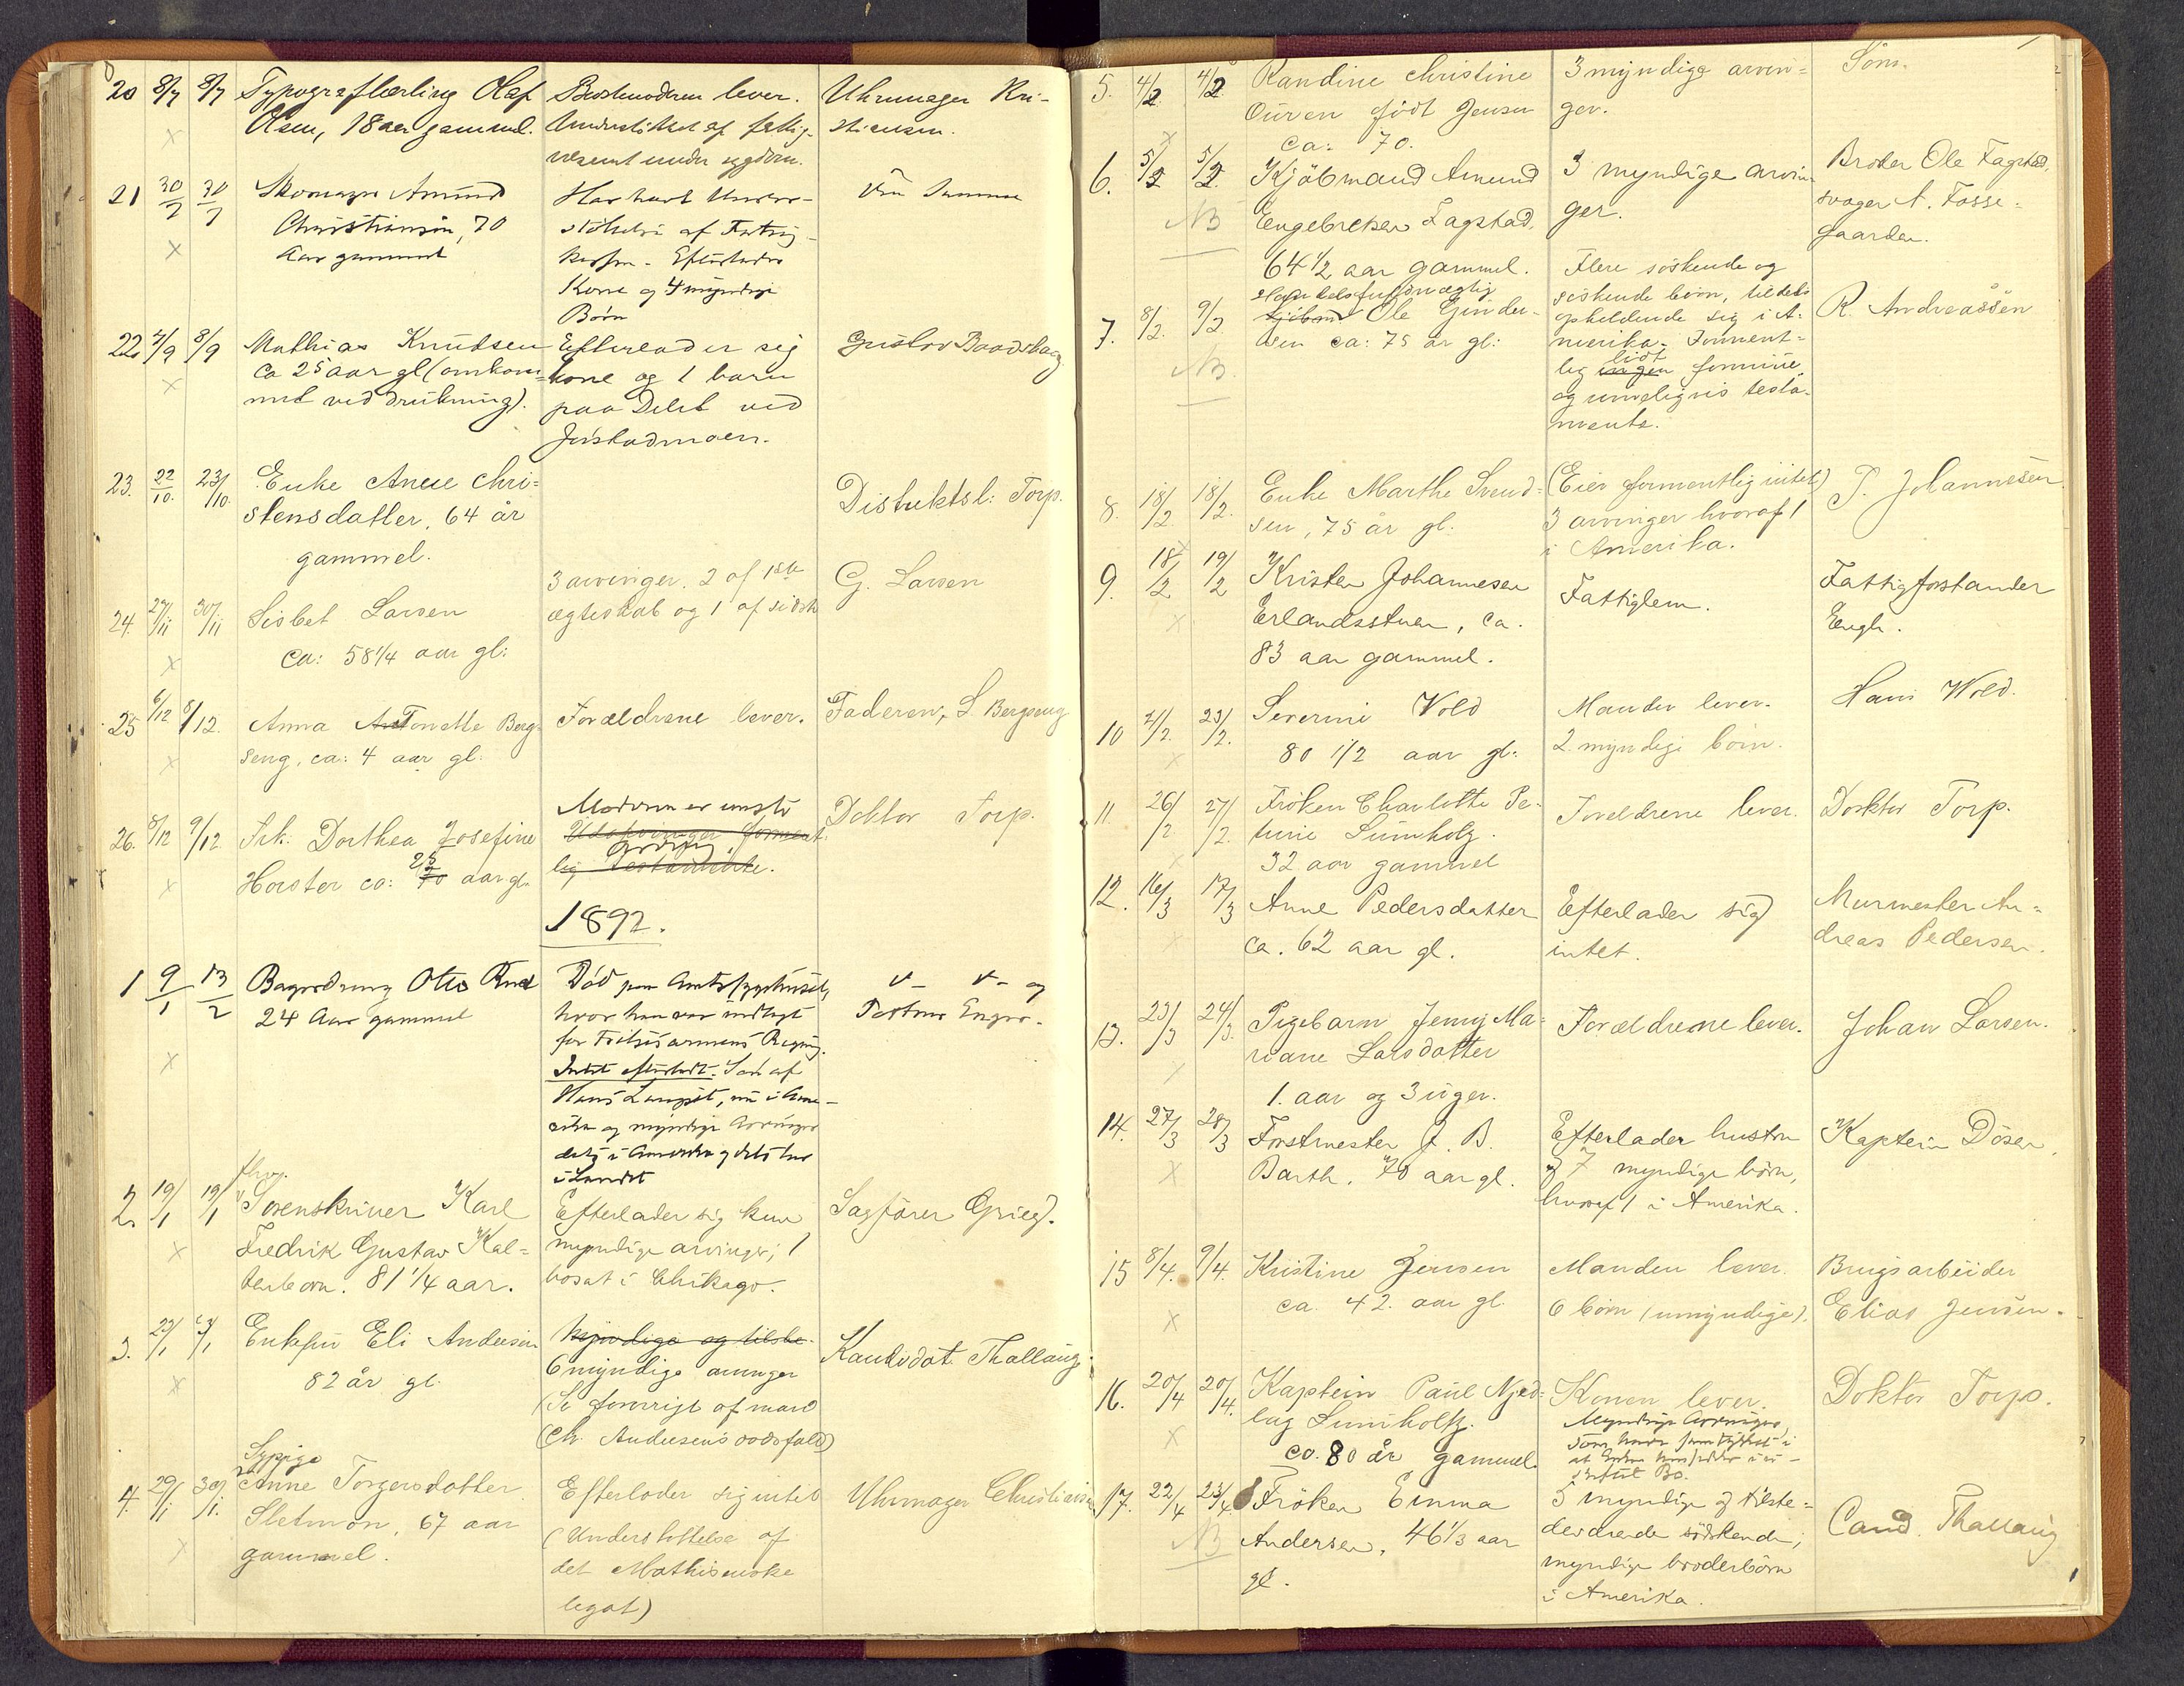 20 8/7 8/7 Typograflærling Olaf
Olsen, 18 aar gammel.
Bedstemoderen lever.
Understøttet af fattig-
væsenet under sygdom.
Uhrmager Kri-
stiansen.
21 30/7 30/7 Skomager Amund
Christiansen, 70
Aar gammel
Har havt Under-
støttelse af Fattig-
kassen. Efterlader
Kone og 4 myndige
Børn
Fru Samme
22. 4/9 8/9 Mathias Knudsen
ca 25 aar gl (omkom-
met ved drukning).
Efterlader sig
kone og 1 barn
paa Delet ved
Jørstadmoen.
Gustav Baadshaug
23. 22/10. 23/10. Enke Anne Chri-
stensdatter, 64 år
gammel.
Distriktsl: Torp.
24. 27/11 30/11 Lisbet Larsen
ca: 58 1/4 aar gl:
3 arvinger. 2 af 1ste
ægteskab og 1 af sidste
G. Larsen
25 6/12 8/12. Anna Antonette Berg-
seng, ca: 4 aar gl.
Forældrene lever.
Faderen, L. Bergseng
26. 8/12 9/12. Frk. Dorthea Josefine
Horster ca: 70 25 aar gl.
Moderen er eneste
Udarvinger forment-
Arving
lig Testamente.
Doktor Torp.
1892.
1 9/1 13/2 Bagersvend Otto Rud
24 Aar gammel
Død paa Amtssygehuset,
hvor han var indlagt
for Frelsesarmeens Regning.
Intet efterladt. Søn af
Hans Lampet, nu i Ame-
rika og myndige Arvinger
dels i Amerika og dels her
i Landet
v- v- og
Pastor Enger.
2. 19/1 19/1 fhv.
Sorenskriver Karl
Fredrik Gustav Kal-
tenborn. 81 1/4 aar.
Efterlader sig kun
myndige arvinger; 1
bosat i Chikago.
Sagfører Grieg.
3. 22/1 23/1 Enkefru Eli Andersen
82 år gl.
Myndige og tilste-
6 myndige arvinger
(Se forøvrigt af mand
Ch. Andersens dødsfald)
Kandidat Thallaug.
4. 29/1 30/1. Sypige
Anne Torgersdatter
Sletmoen, 67 aar
gammel.
Efterlader sig intet
(Understøttelse af
det Mathisenske
legat)
Uhrmager Christiansen
5. 4/2 4/2 Randine Christine
Ouren født Jensen
ca: 70.
3 myndige arvin-
ger.
Søn.
6. 5/2 5/2. Kjøbmand Amund
Engebretsen Fagstad,
64 1/2 aar gammel.
NB
3 myndige arvin-
ger.
Broder Ole Fagstad,
svoger A. Fosse-
gaarden.
7. 8/2. 9/2 Handelsfuldmægtig
Kjøbm Ole Gunder-
sen ca: 75 år gl:
NB
Flere søskende og
søskende børn, tildels
opholdende sig i A-
merika. Forment-
lidt
lig ingen formue,
og rimeligvis testa-
mente.
R. Andreassen
8. 18/2 18/2. Enke Marthe Svend-
sen, 75 år gl.
(Eier formentlig intet)
3 arvinger hvoraf 1
i Amerika.
P. Johannesen
9. 18/2 19/2 Kristen Johannesen
Erlandsstuen, ca.
83 aar gammel.
Fattiglem.
Fattigforstander
Engh.
10 21/2. 23/2. Severine Vold
80 1/2 aar gl.
Manden lever.
2 myndige børn.
Hans Wold.
11. 26/2 27/2. Frøken Charlotte Pe-
trine Lumholtz.
32 aar gammel
Foreldrene lever.
Dorktor Torp.
12. 16/3 17/3 Anne Pedersdatter
ca. 62 aar gl.
Efterlader sig
intet.
Murmester An-
dreas Pedersen.
13. 23/3 24/3. Pigebarn Jenny Ma-
riane Larsdatter
1. aar og 3 uger.
Forældrene lever.
Johan Larsen.
14. 27/3 28/3 Forstmester J. B.
Barth. 70 aar gl.
Efterlader hustru
og 7 myndige børn,
hvoraf 1 i Amerika.
Kaptein Døsen.
15 8/4. 9/4. Kristine Jensen
ca. 42. aar gl.
Manden lever.
6 børn (umyndige).
Brugsarbeider
Elias Jensen.
16. 20/4 20/4. Kaptein Paul Njed-
lag Lumholtz.
ca. 80 år gammel.
Konen lever.
Myndige Arvinger,
som have samtykket i
at Enken hensidder i u-
skiftet Bo.
Doktor Torp.
17. 22/4 23/4 Frøken Emma
Andersen, 46 1/3 aar
gl.
NB
5 myndige og tilste-
deværende søskende;
myndige broderbørn
i Amerika.
Cand. Thallaug